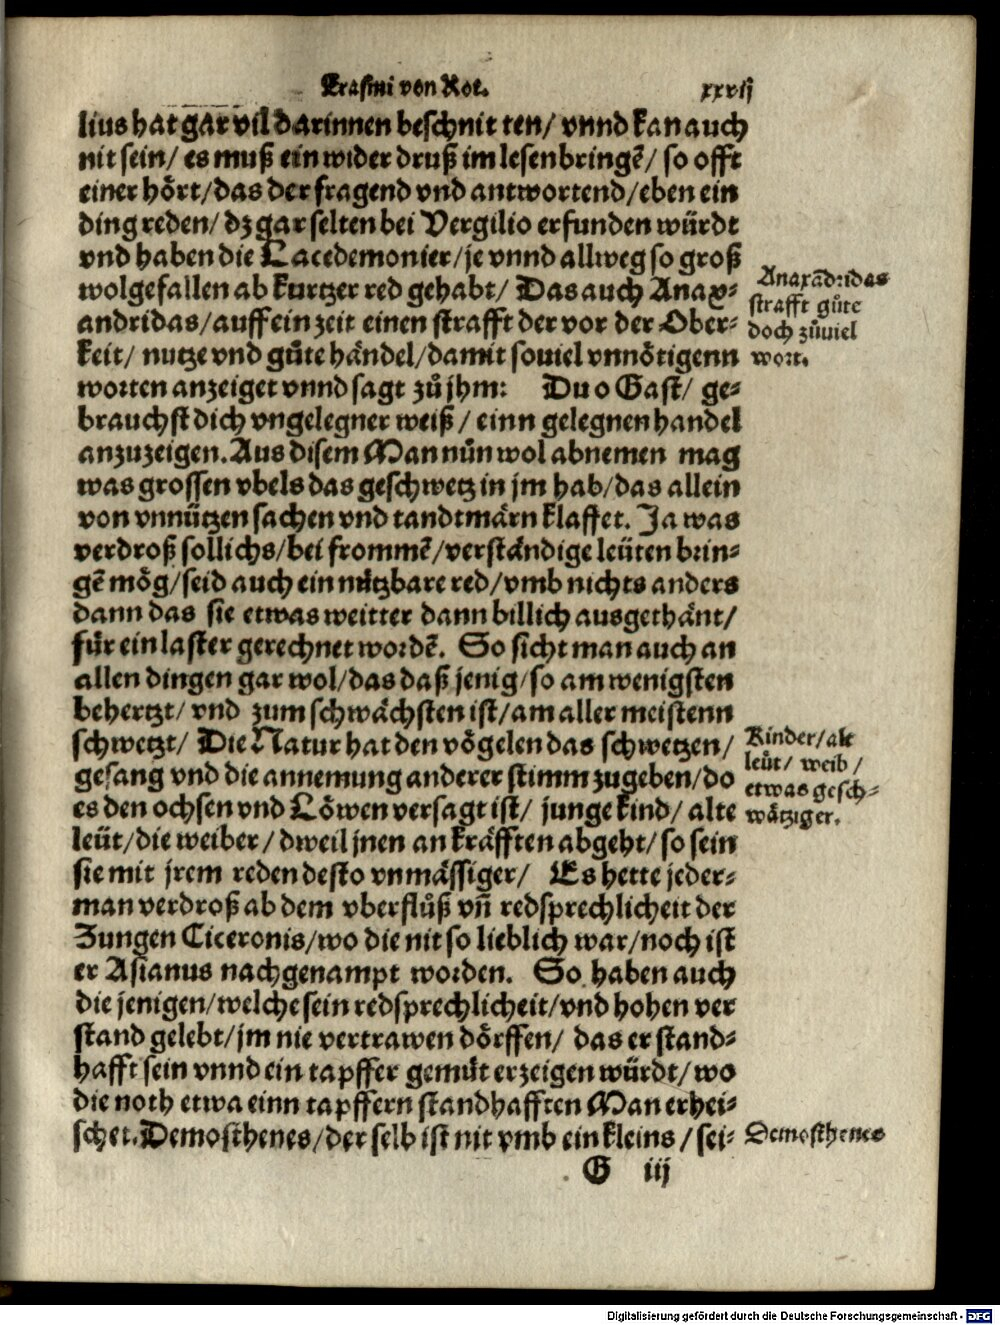 Erasmi von Rot. xxvij
lius hat gar vil darinnen beschnit ten/ vnnd kan auch
nit sein/ es muß ein wider druß im lesen bringē/ so offt
einer hört/das der fragend vnd antwortend/eben ein
ding reden/ dz gar selten bei Vergilio erfunden würdt
vnd haben die Lacedemonier/je vnnd allweg so groß
wolgefallen ab kurtzer red gehabt/ Das auch Anax-
andridas/auff ein zeit einen strafft der vor der Ober-
keit/ nutze vnd gůte händel/damit souiel vnnötigenn
worten anzeiget vnnd sagt zů jhm: Du o Gast/ ge-
brauchst dich vngelegner weiß/ einn gelegnen handel
anzuzeigen. Aus disem Man nůn wol abnemen mag
was grossen vbels das geschwetz in jm hab/das allein
von vnnützen sachen vnd tandtmärn klaffet. Ja was
verdroß sollichs/bei frommē/verständige leüten brin-
gē mög/seid auch ein nützbare red/vmb nichts anders
dann das sie etwas weitter dann billich ausgethänt/
für ein laster gerechnet wordē. So sicht man auch an
allen dingen gar wol/das daß jenig/so am wenigsten
behertzt/ vnd zum schwächsten ist/am aller meistenn
schwetzt/ Die Natur hat den vögelen das schwetzen/
gesang vnd die annemung anderer stimm zugeben/do
es den ochsen vnd Löwen versagt ist/ junge kind/ alte
leüt/die weiber/ dweil jnen an kräfften abgeht/so sein
sie mit jrem reden desto vnmässiger/ Es hette jeder-
man verdroß ab dem vberflůß vñ redsprechlicheit der
Zungen Ciceronis/wo die nit so lieblich war/noch ist
er Asianus nachgenampt worden. So haben auch
die jenigen/welche sein redsprechlicheit/vnd hohen ver
stand gelebt/jm nie vertrawen dörffen/ das er stand-
hafft sein vnnd ein tapffer gemüt erzeigen würdt/wo
die noth etwa einn tapffern standhafften Man erhei-
schet. Demosthenes/der selb ist nit vmb ein kleins/sei-
G iij
Anaxādridas
strafft gůte
doch zůuiel
wort.
Kinder/alt
leüt/ weib/
etwas gesch-
wätziger.
Demosthenes
Digitalisierung gefördert durch die Deutsche Forschungsgemeinschaft - DFG